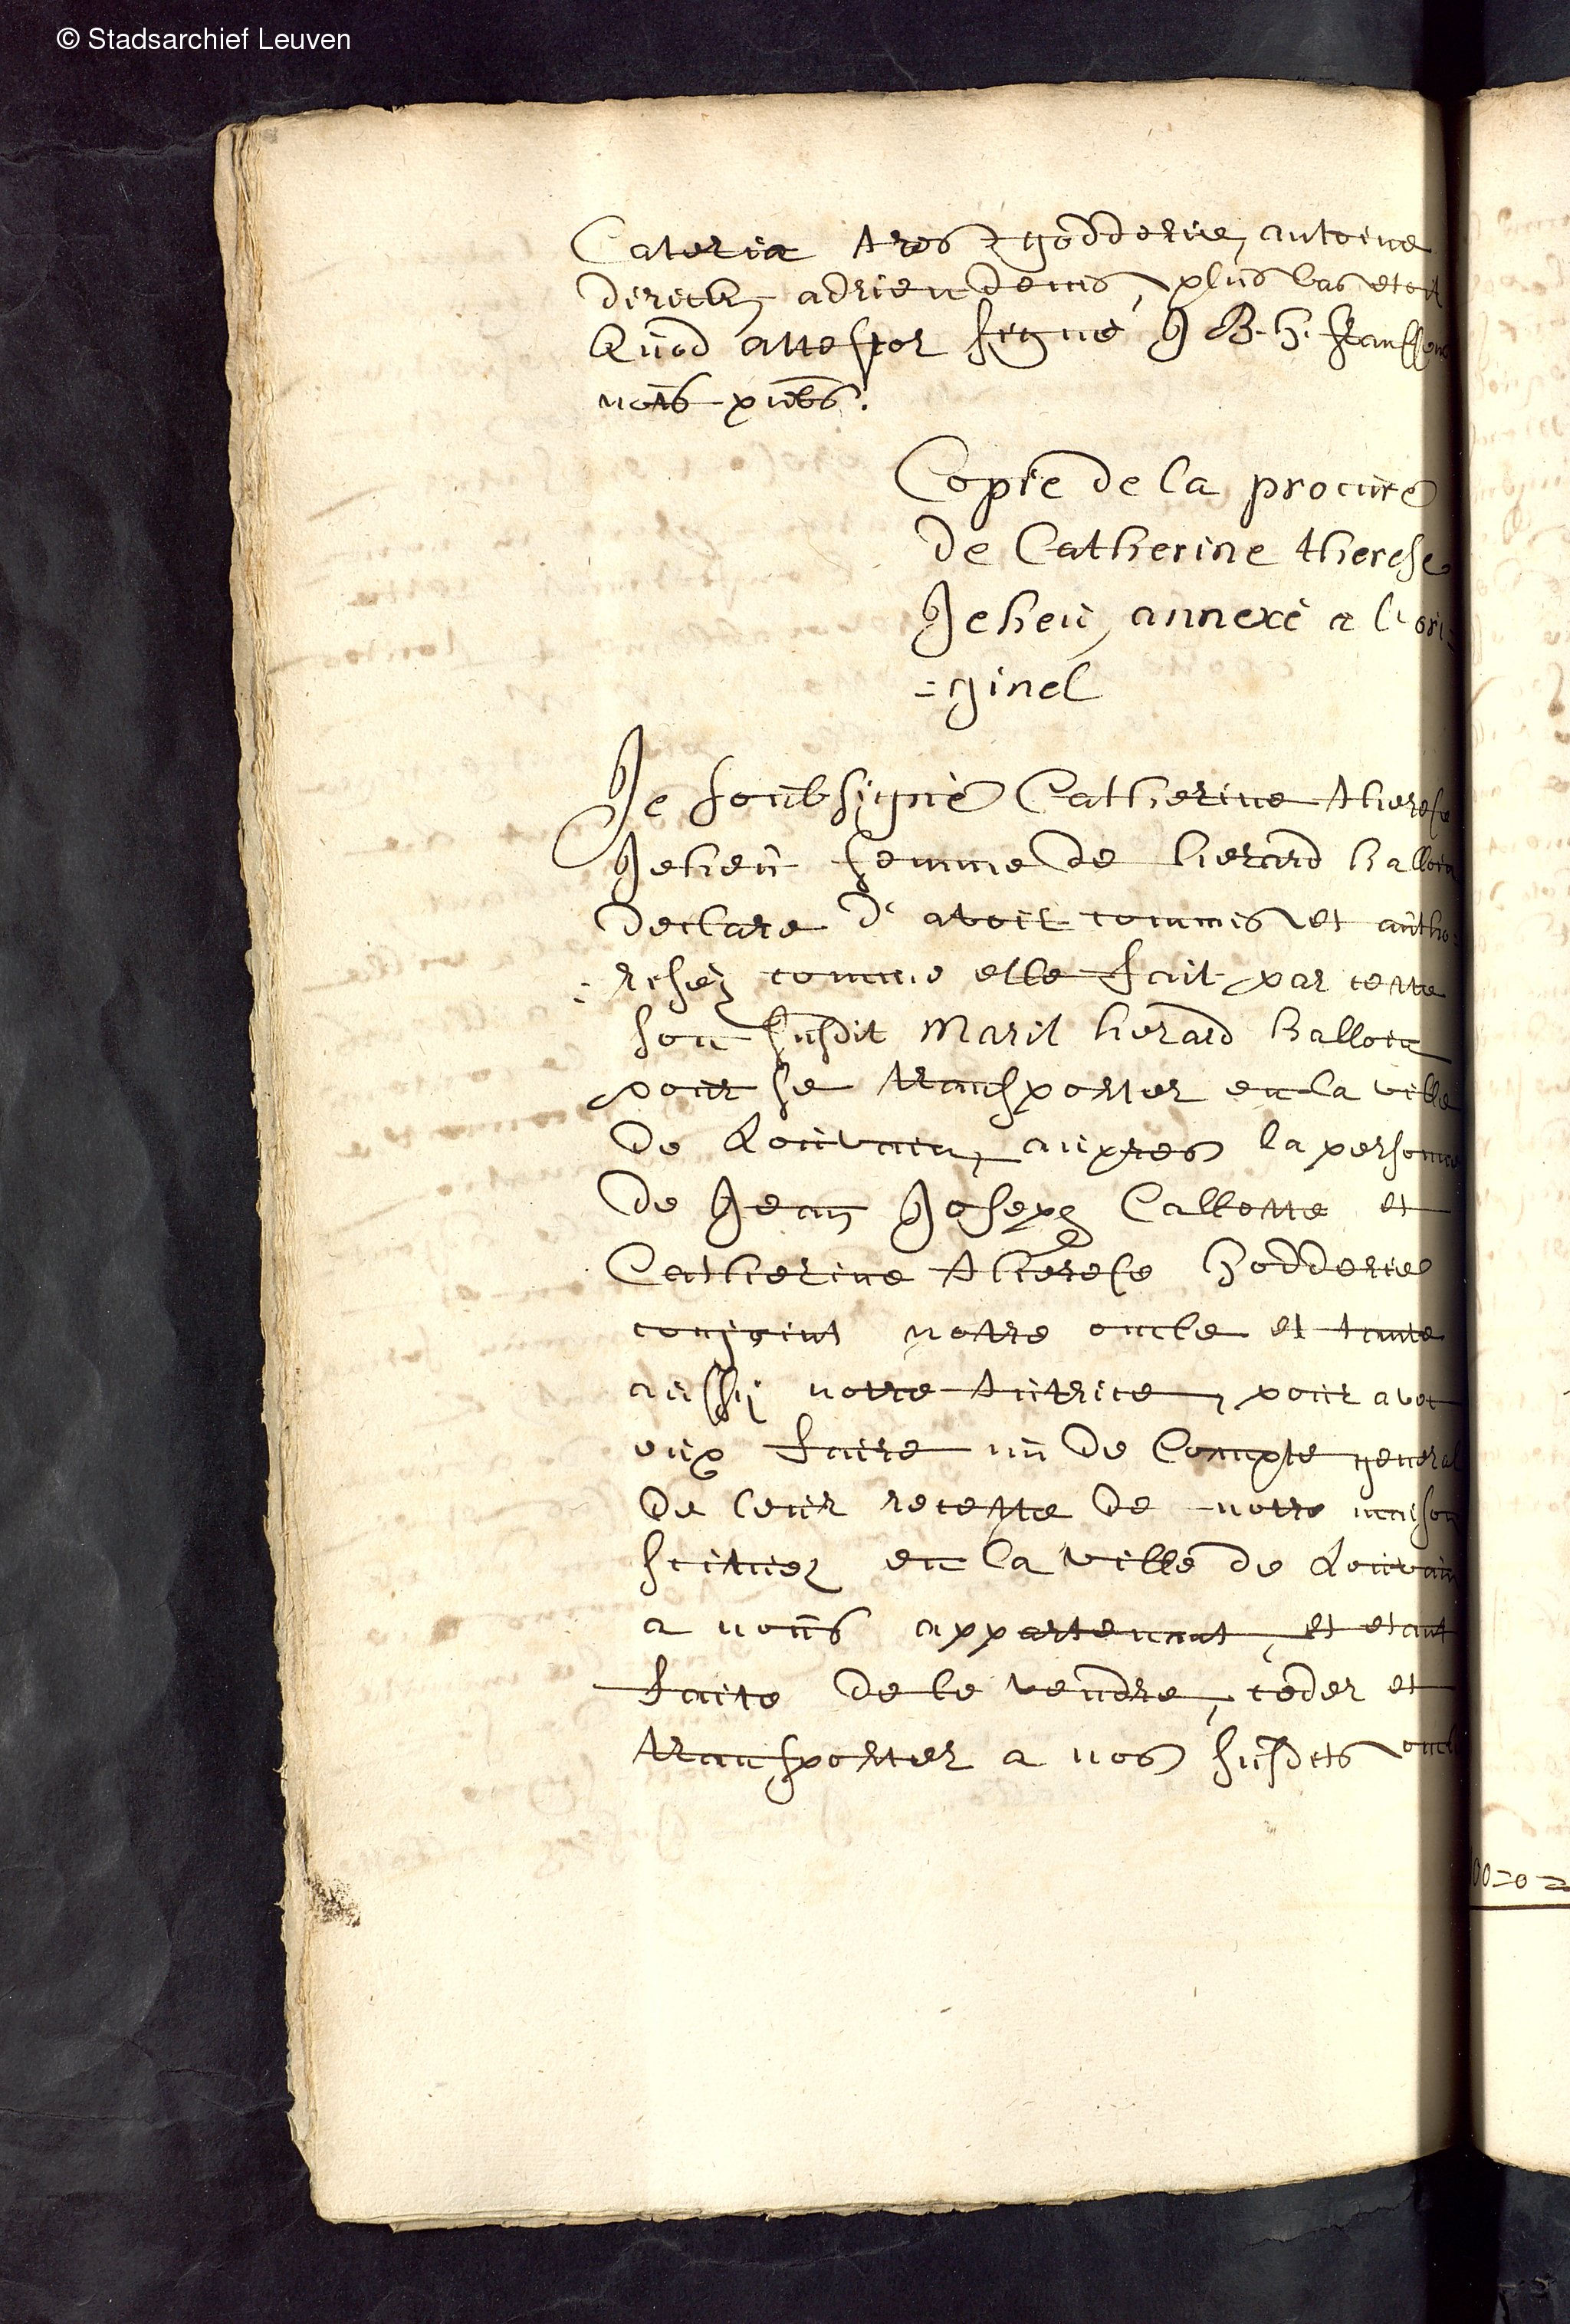 © Stadsarchief Leuven
Cateria tres godderie, antoine
dirick, adrien denis, plus bas etoit
Quod attestor signé J B. H.
nots pubs.
Copie de la procure
de Catherine therese
Jeheu, annexé a l'ori
=ginel
Je soubsigné Catherine therese
Jeheu femme de herard balloin
declare d'avoir commis et autho
=risez comme elle fait par cette
son susdit Maril herard balloin
pour se transporter en la ville
de Louvain, aupres la personne
de Jean Joseph Callotte et
Catherine therese Hodderie
conjoint notre oncle et tante
aussy notre tutrice, pour avec
eux faire un de Compte general
de leur recette de notre maison
scituez en la ville de Louvain
a nous appartenant, et etant
faite de le vendre, ceder et
transporter a nos susdets oncle
00=0=